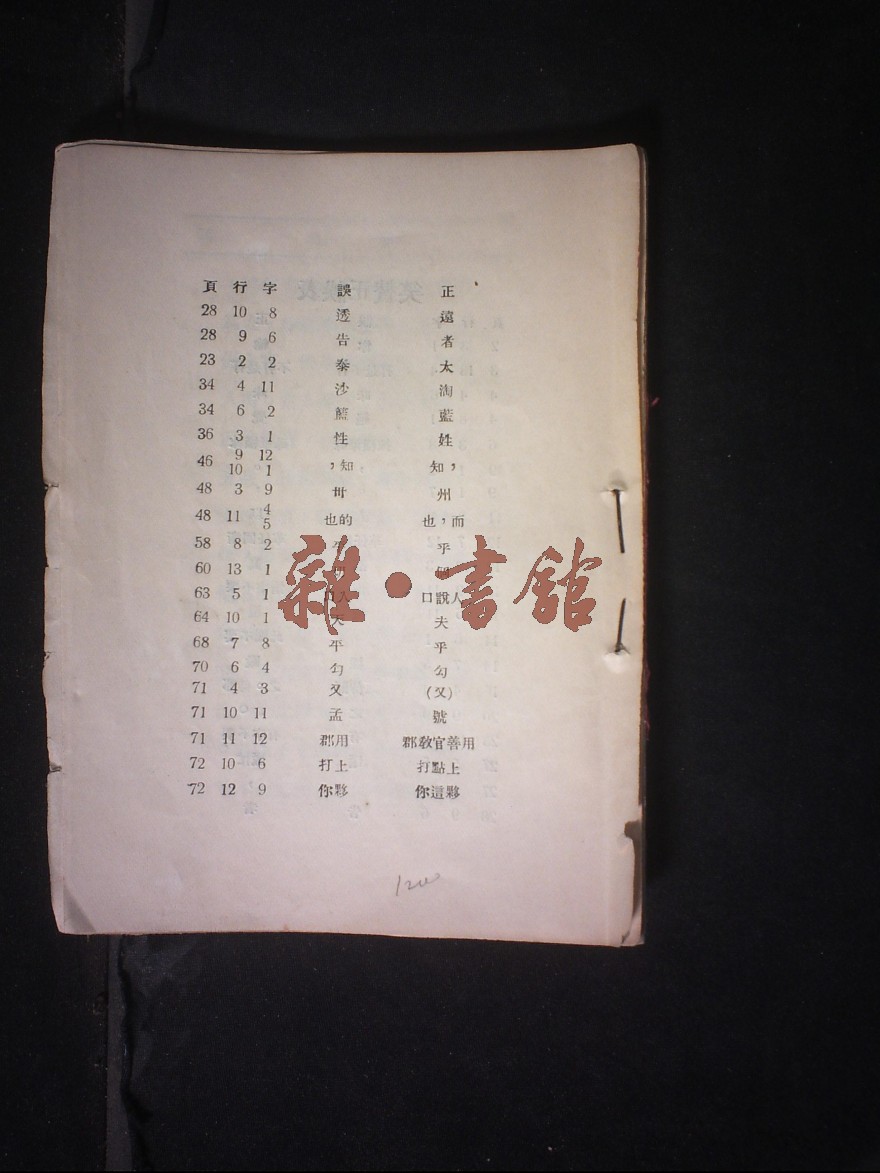 頁 行 字 誤 正
28 10 8 透 遠
28 9 6 告 者
23 2 2 泰 太
34 4 11 沙 淘
34 6 2 藍
36 3 1 性 姓
46 9 12 ，知 知，
10 1
48 3 9 卅 州
48 11 4 也的 也，而
5
58 8 2 乎
60 13 1
63 5 1 口說人
64 10 1 天 夫
68 7 8 平 乎
70 6 4 勻 勾
71 4 3 又 (又)
71 10 11 孟 號
71 11 12 郡用 郡敎官善用
72 10 6 打上 打點上
72 12 9 你夥 你這夥
雜·書舘
1200